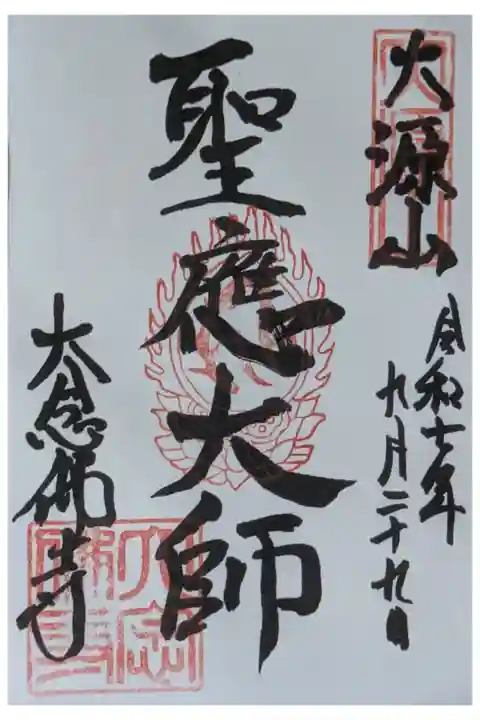 大源山
令和七年
九月二十九日
聖應大師
大念佛寺
大念
佛寺